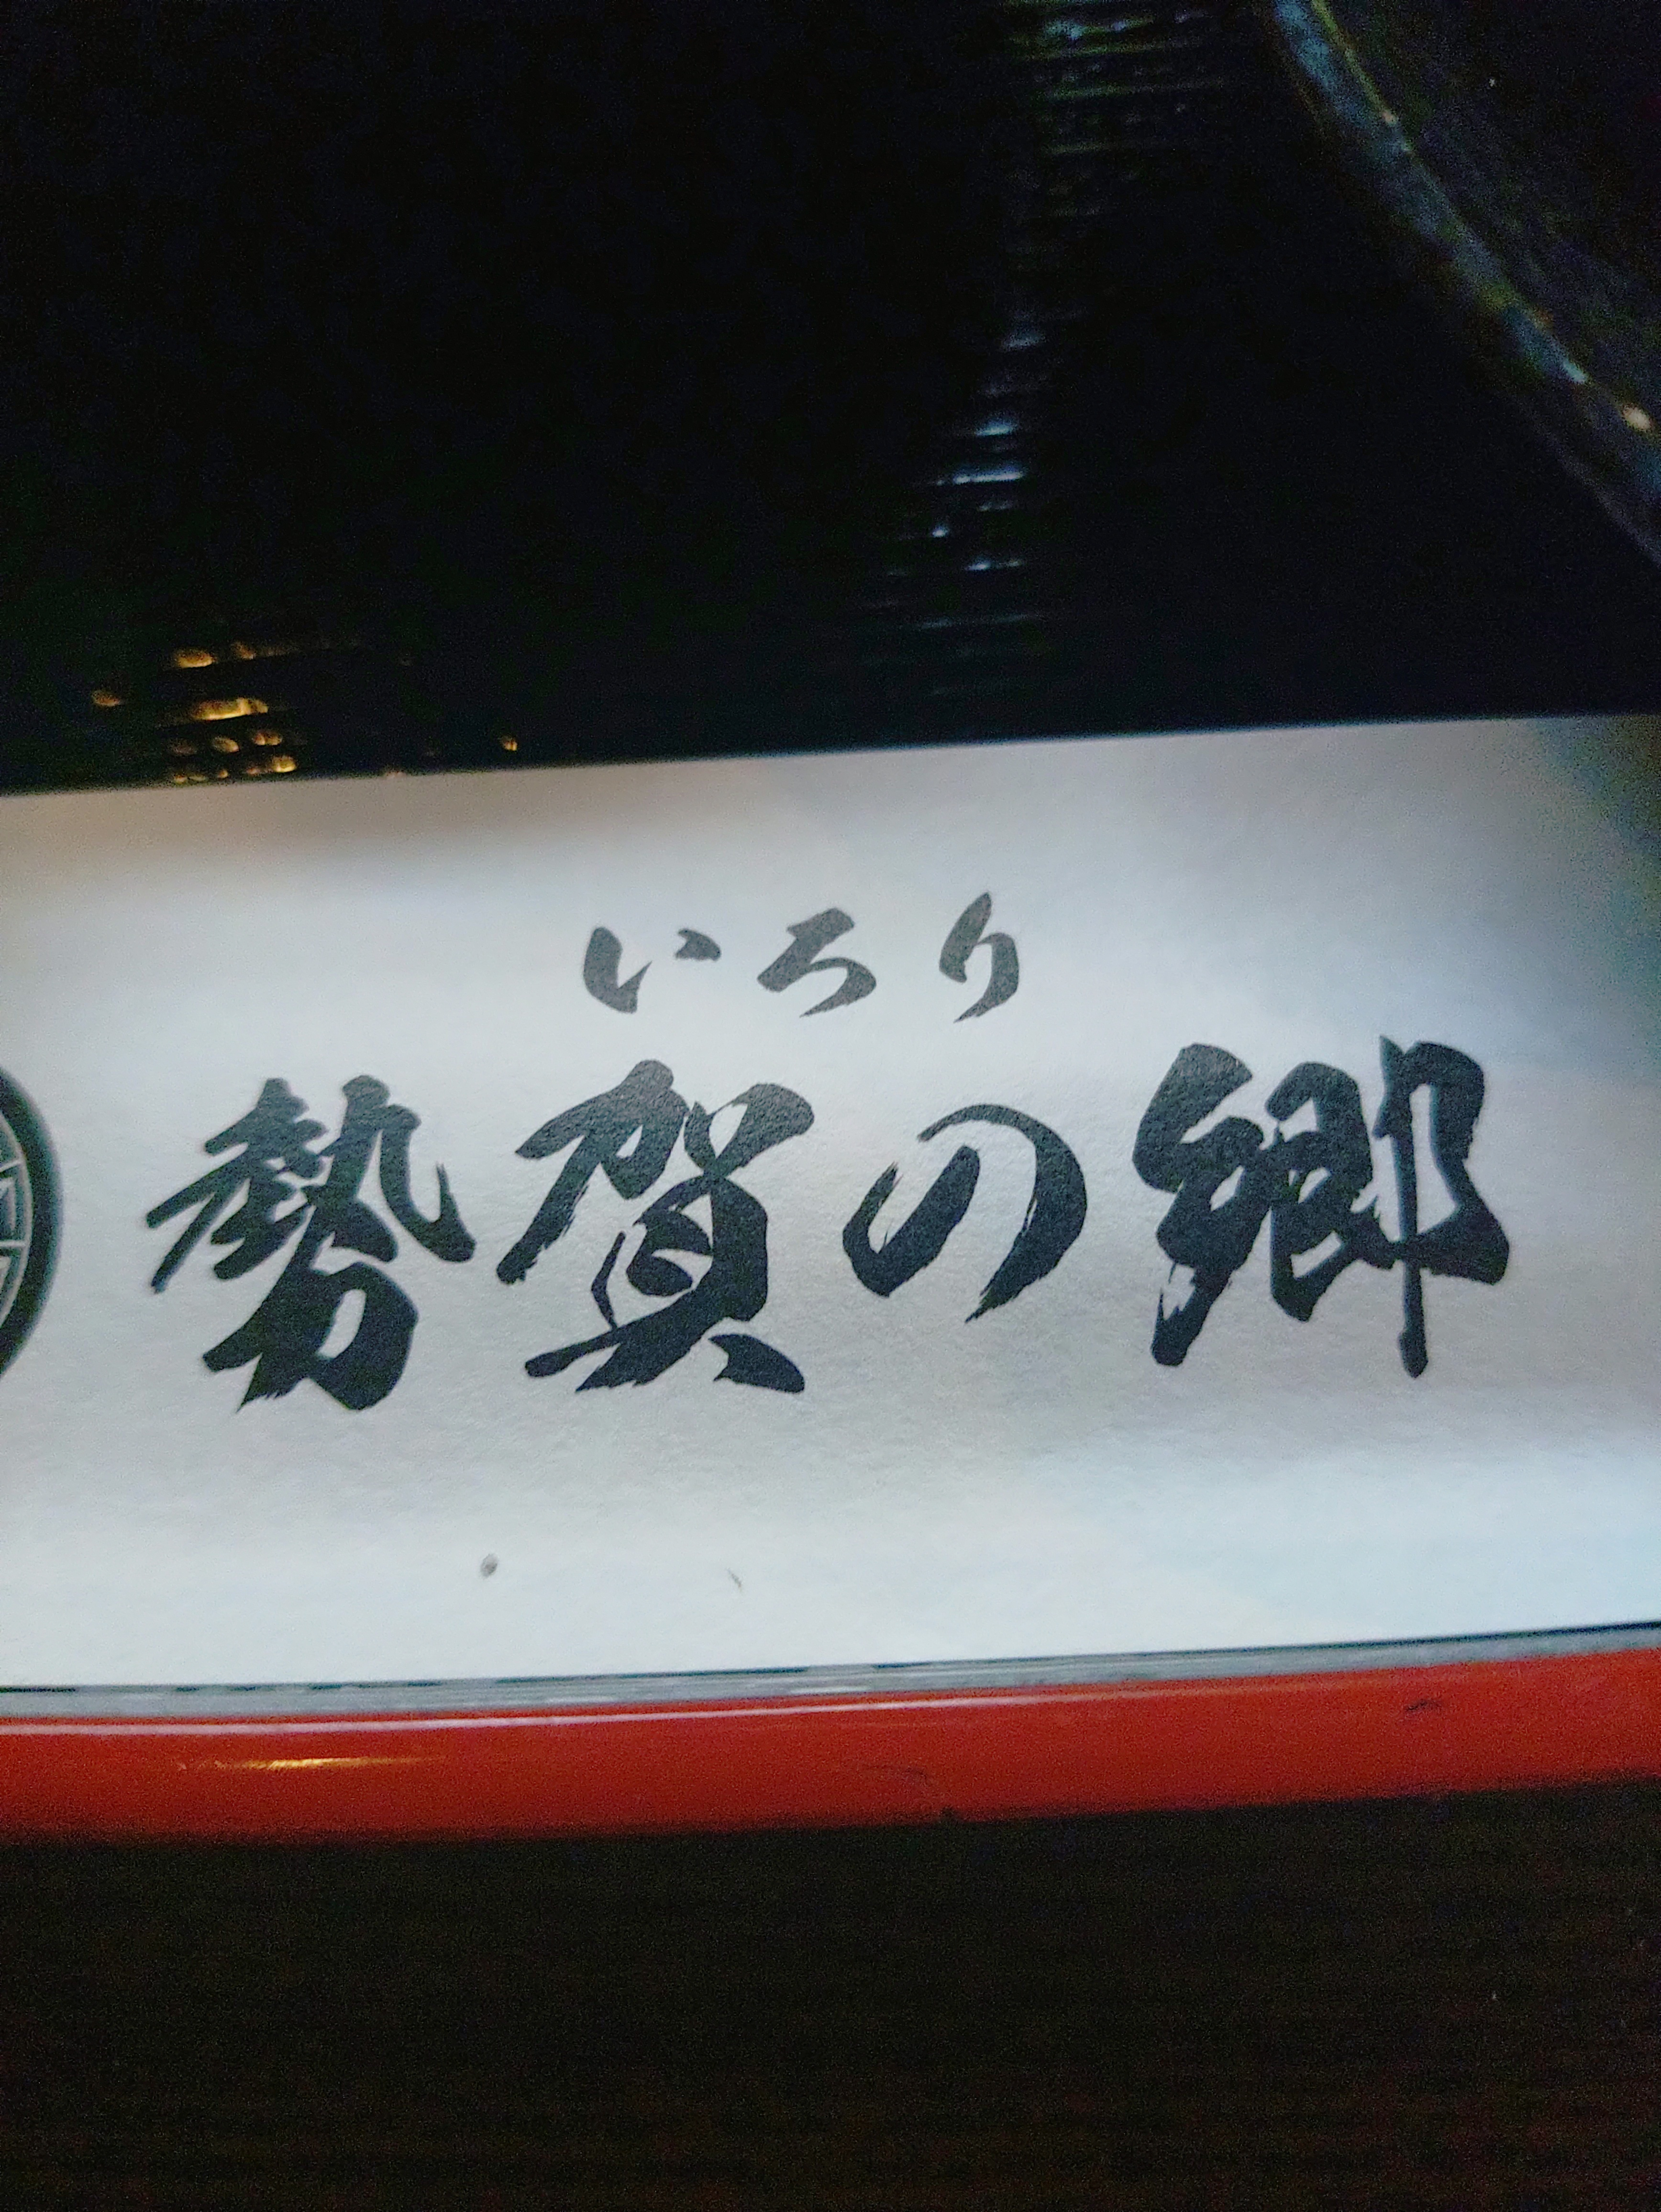 いろり
勢賀の郷